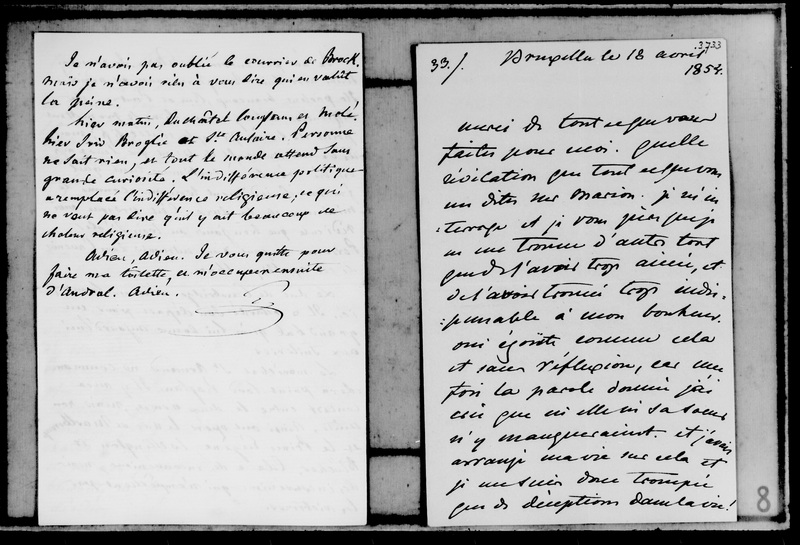 Je n'avois pas oublié le courrier de Brock.
mais je n'avois rien à vous dire qui en valût
la peine.
hier matin, Duchâtel longtems et Molé.
hier soir Broglie et Ste Aulaire. Personne
ne sait rien, et tout le monde attend sans
grande curiosité. L'indifférence politique
a remplacé l'indifférence religieuse; ce qui
ne veut pas dire qu'il y ait beaucoup de
chaleur religieuse.
Adieu, Adieu. Je vous quitte pour
faire ma toilette, et m'occuper ensuite
d'Andral. Adieu.
3733
33./. Bruxelles le 18 avril
1854.
merci de tout ce que vous
faites pour moi. quelle
révélation que tout ce que vous
me dites sur Marion. je m'in
:terroge et je vous jure que je
ne me trouve d'autre tort
que de l'avoir trop aimée, et
de l'avoir trouvé trop indis:
:pensable à mon bonheur.
oui égoïste comme cela
et sans réflexion, car une
fois la parole donnée j'ai
cru que ni elle ni sa soeur
n'y manqueraient. et j'avais
arrangé ma vie sur cela et
je me suis donc trompée
que de déceptions dans la vie!
8